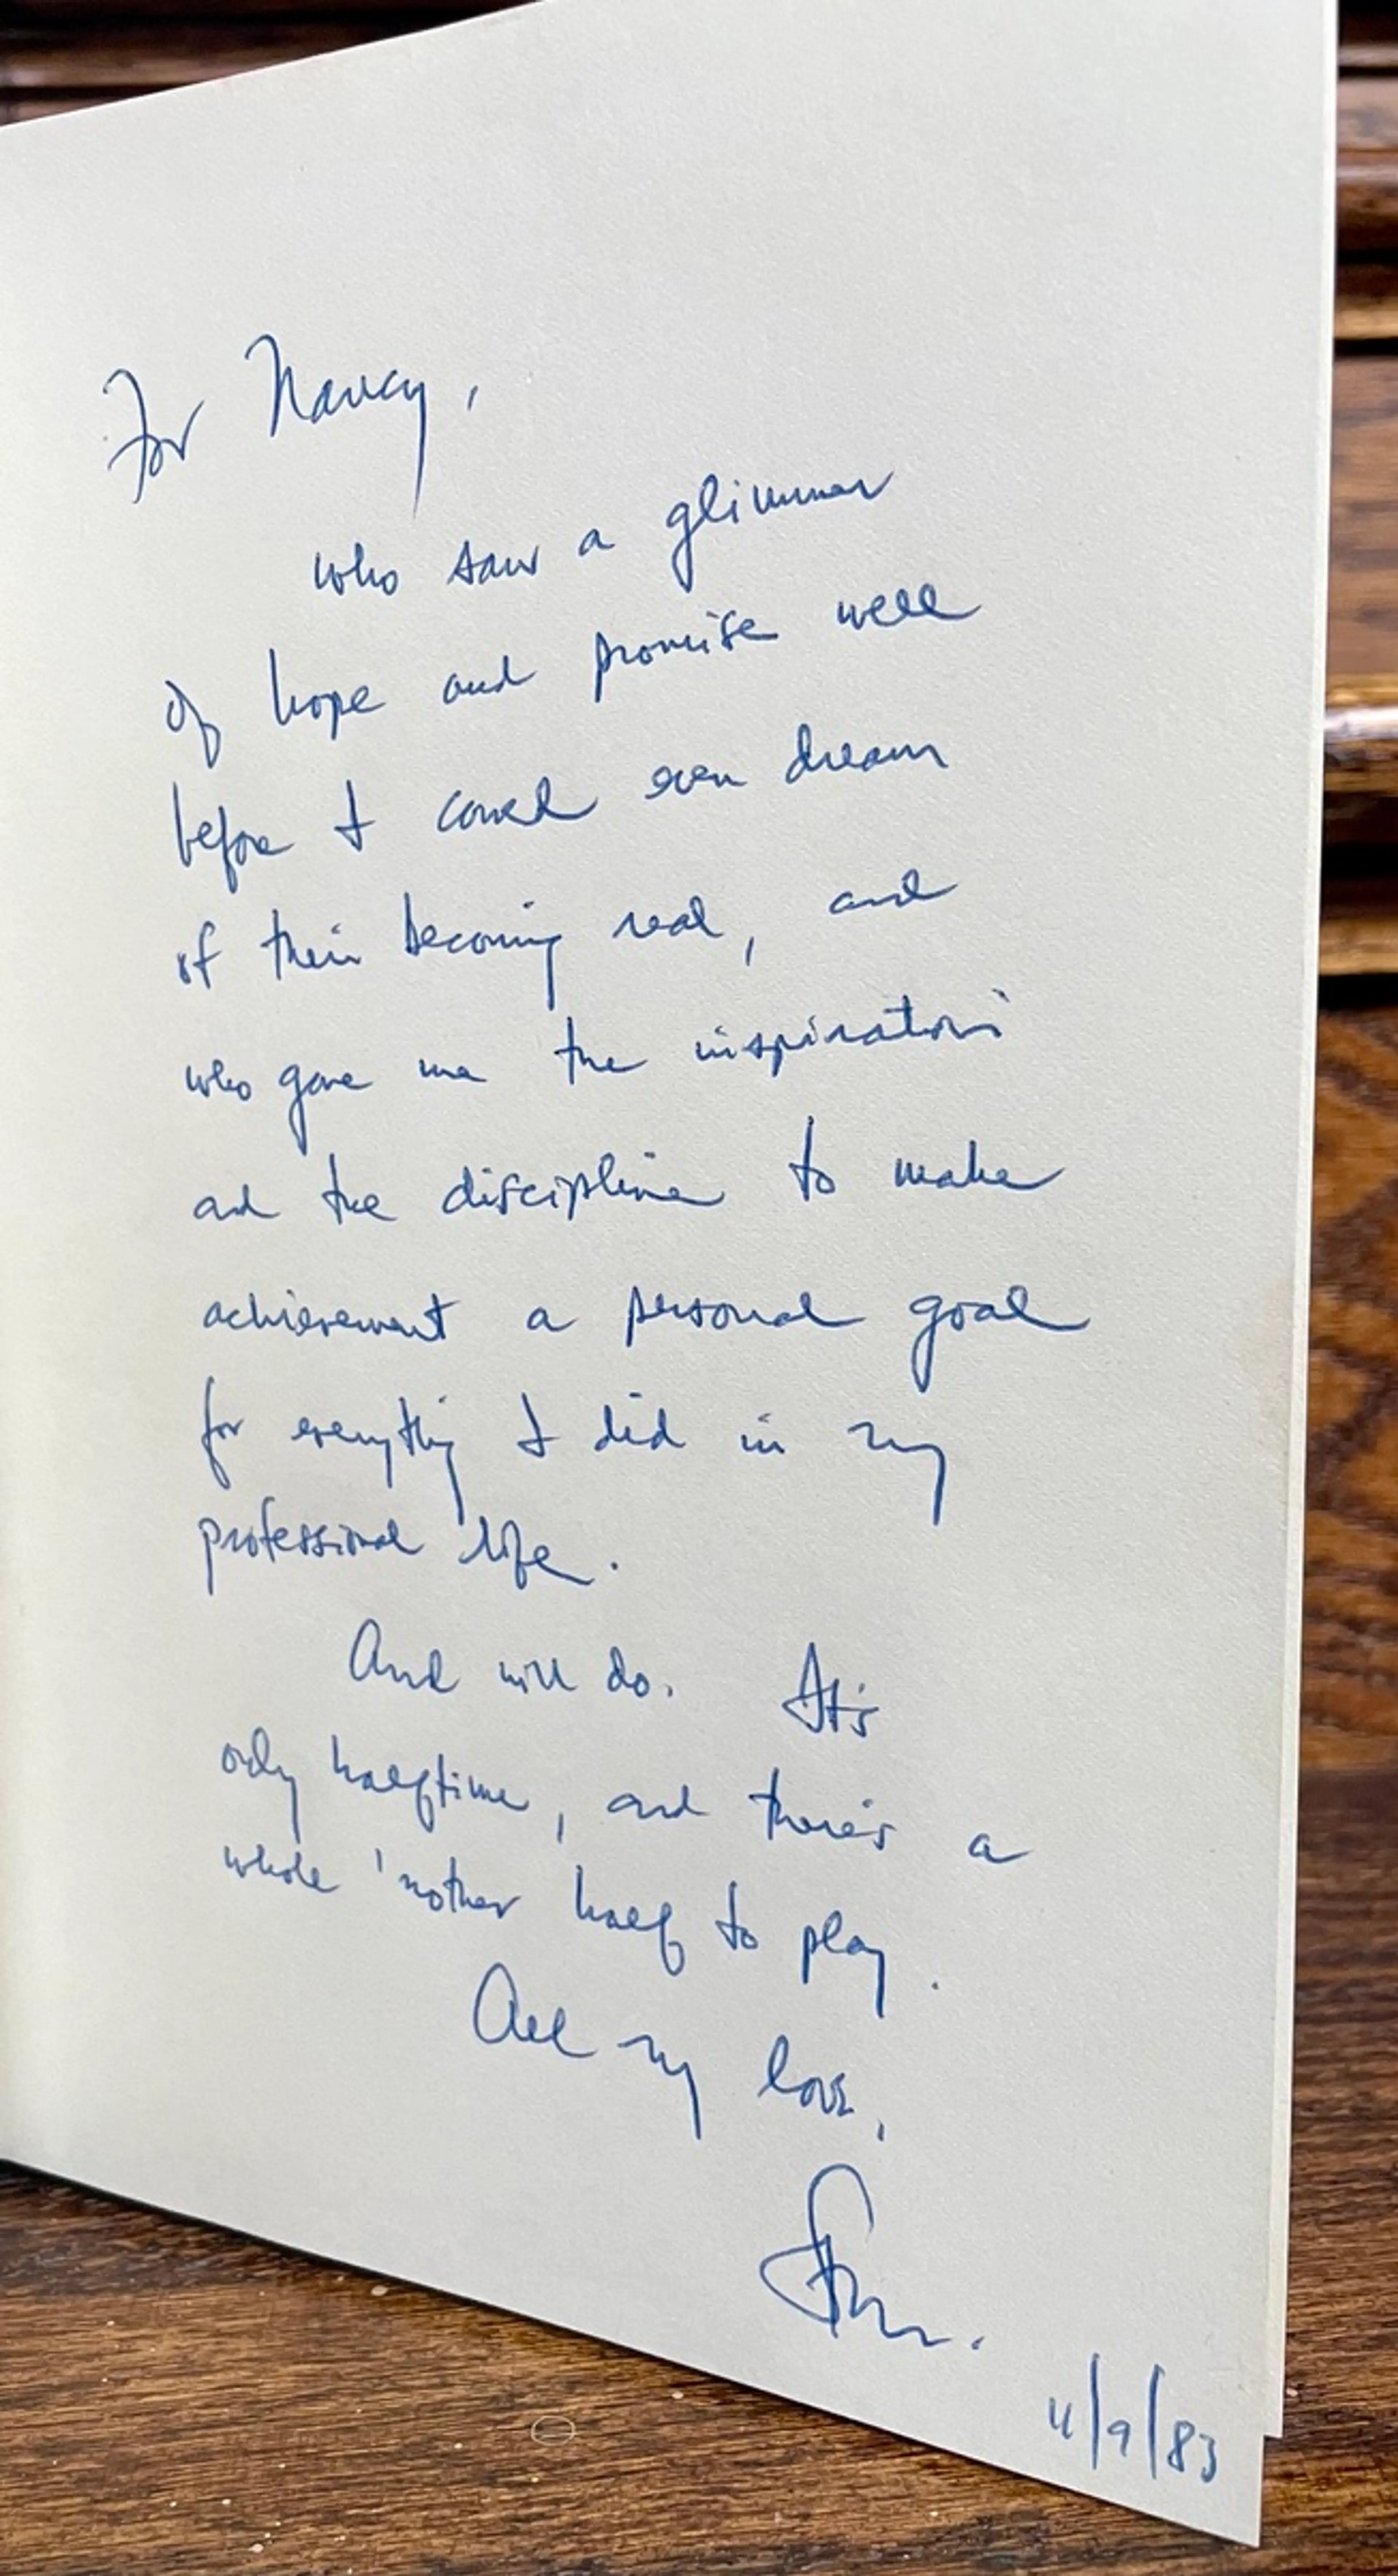 For Nancy,
who saw a glimmer
of hope and promise well
before I could even dream
of their becoming real, and
who gave me the inspiration
and the discipline to make
achievement a personal goal
for everything I did in my
professional life.
And will do. It's
only halftime, and there's a
whole 'nother half to play.
All my love,
/9/83